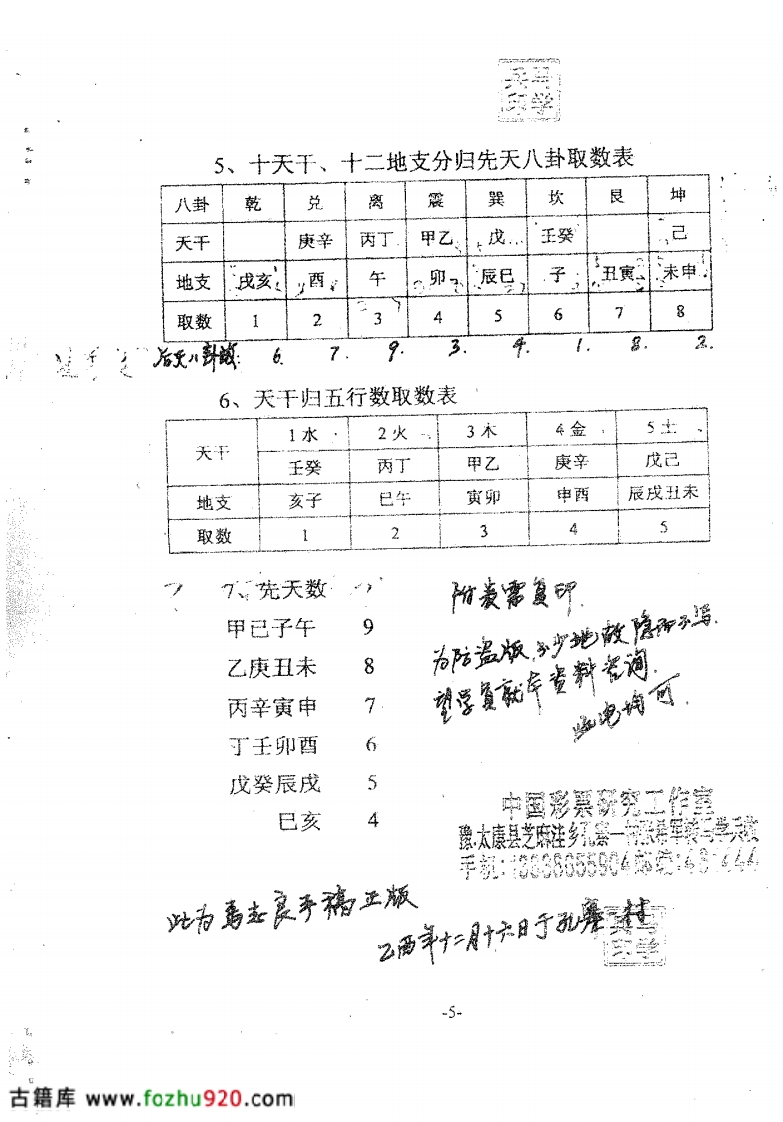 5、十天干、十二地支分归先天八卦取数表
八卦 乾 兑 离 震 巽 坎 艮 坤
天干 庚辛 丙丁 甲乙 戊 壬癸 己
地支 戌亥 酉 午 卯 辰巳 子 丑寅 未申
取数 1 2 3 4 5 6 7 8
后天八卦数: 6. 7. 9. 3. 4. 1. 8. 2.
6、天干归五行数取数表
天干 1水 2火 3木 4金 5土
壬癸 丙丁 甲乙 庚辛 戊己
地支 亥子 巳午 寅卯 申酉 辰戌丑未
取数 1 2 3 4 5
7、先天数
甲已子午 9
乙庚丑未 8
丙辛寅申 7
丁壬卯酉 6
戊癸辰戌 5
巳亥 4
附表需复印.
为防盗版,不少地故隐而不写.
望学员就本资料咨询.
电均可.
中国彩票研究工作室
豫:太康县芝麻洼乡孔寨
手机:
此为马志良手稿正版
乙酉年十二月十六日于孔寨村
-5-
古籍库 www.fozhu920.com